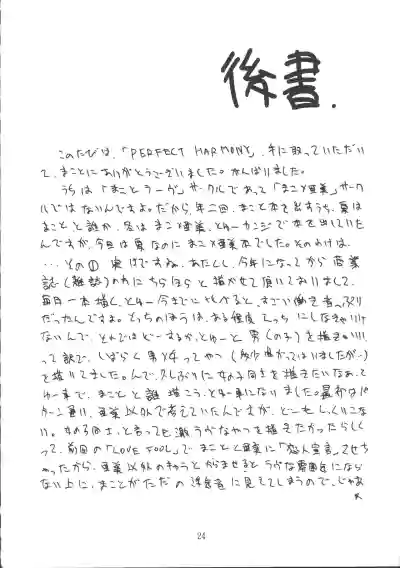 後書.
このたびは、「PERFECT HARMONY」、手に取っていただい
て、まことにありがとうございました。がんばりました。
うちは「まことラーヴ」サークルであって「まこ×亜美」サーク
ルではないんですよ。だから、年二回、まこと本を出すうち、夏は
まことと誰か、冬はまこ×亜美、とゆーカンジで本を出していた
んですが、今回は夏なのにまこ×亜美本でした。そのわけは、
…その① 実はですね、あたくし、今年になってから商業
誌(雑誌)のにちらほらと描かせて頂いておりまして、
毎月一本描く、とゆー今までに比べると、すごい働き者っぷり
だったんですよ。どっちのほうは、ある程度えっちにしなきゃいけ
ないんで、それではどーするか、とゆーと男(の子)を描き
って訳で、しばらく男×4ってやつ(多少違かってはいましたが…)
を描いてました。んで、久しぶりに女の子同士を描きたいなあ、て
ゆー事で、まことと誰描こう、とゆー事になりました。最初はパ
ターン通り、亜美以外で考えていたんですが、どーもしっくりこな
い。女の子同士、と言っても激ラヴなやつを描きたかったらしく
って、前回の「LOVE FOOL」でまことと亜美に「恋人宣言」させち
ゃったから、亜美以外のキャラとからませるとラヴな雰囲気になら
ない上に、まことがただの浮気者に見えてしまうので、じゃあ
24